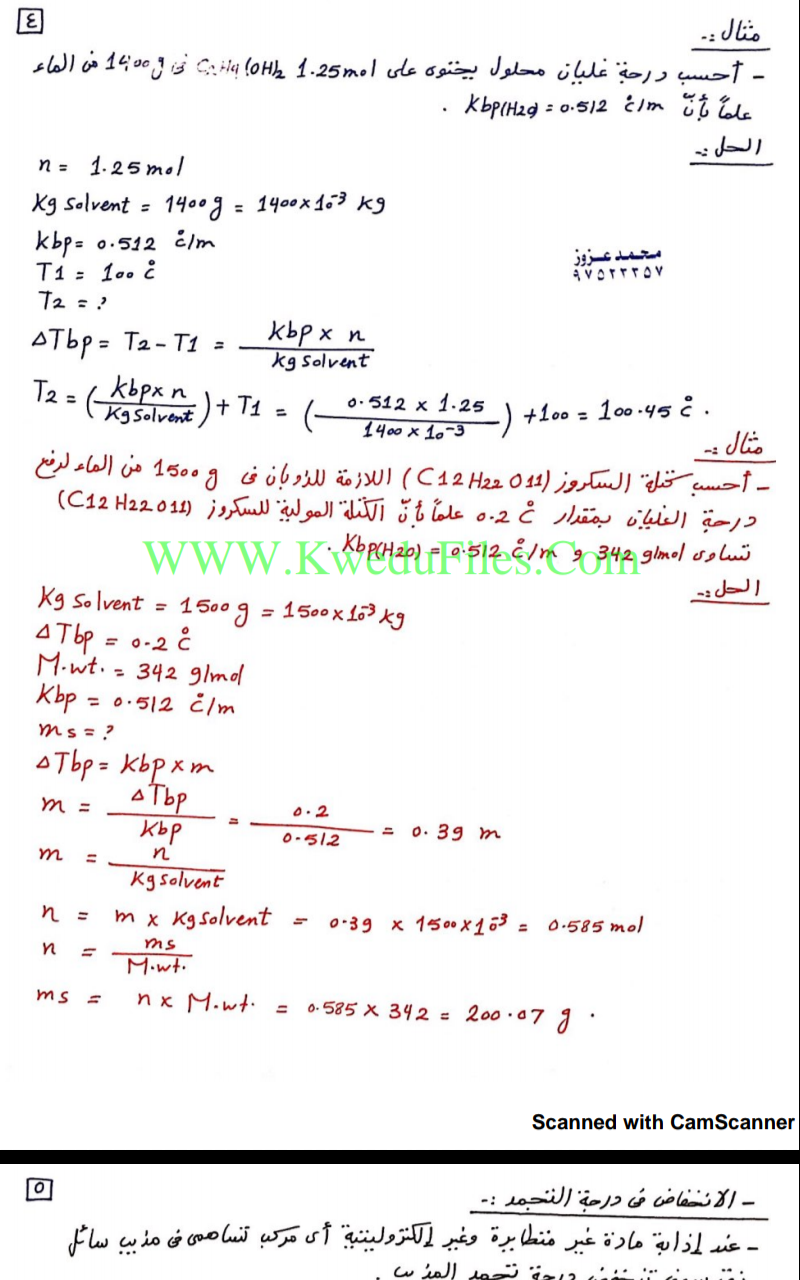 ٤
مثال :-
- أحسب درجة غليان محلول يحتوى على 1.25mol C2H4(OH)2 فى 1400g من الماء
علماً بأنّ Kbp(H2O) = 0.512 C̊/m .
الحل :-
n = 1.25mol
Kg Solvent = 1400g = 1400x10⁻³ Kg
Kbp = 0.512 C̊/m
محمد عزوز
٩٧٥٢٢٢٥٧
T1 = 100 C̊
T2 = ?
ΔTbp = T2 - T1 = Kbp x n / Kg Solvent
T2 = (Kbp x n / Kg Solvent) + T1 = (0.512 x 1.25 / 1400 x 10⁻³) + 100 = 100.45 C̊ .
مثال :-
- أحسب كتلة السكروز (C12H22O11) اللازمة للذوبان فى 1500 g من الماء لرفع
درجة الغليان بمقدار 0.2 C̊ علماً بأنّ الكتلة المولية للسكروز (C12H22O11)
تساوى 342 g/mol و Kbp(H2O) = 0.512 C̊/m .
WWW.KweduFiles.Com
الحل :-
Kg Solvent = 1500g = 1500x10⁻³ Kg
ΔTbp = 0.2 C̊
M.wt. = 342 g/mol
Kbp = 0.512 C̊/m
ms = ?
ΔTbp = Kbp x m
m = ΔTbp / Kbp = 0.2 / 0.512 = 0.39 m
m = n / Kg Solvent
n = m x Kg Solvent = 0.39 x 1500x10⁻³ = 0.585 mol
n = ms / M.wt.
ms = n x M.wt. = 0.585 x 342 = 200.07 g .
Scanned with CamScanner
٥
- الانخفاض فى درجة التجمد :-
- عند إذابة مادة غير متطايرة وغير إلكتروليتية أى مركب تساهمى فى مذيب سائل
تنخفض درجة تجمد المذيب .